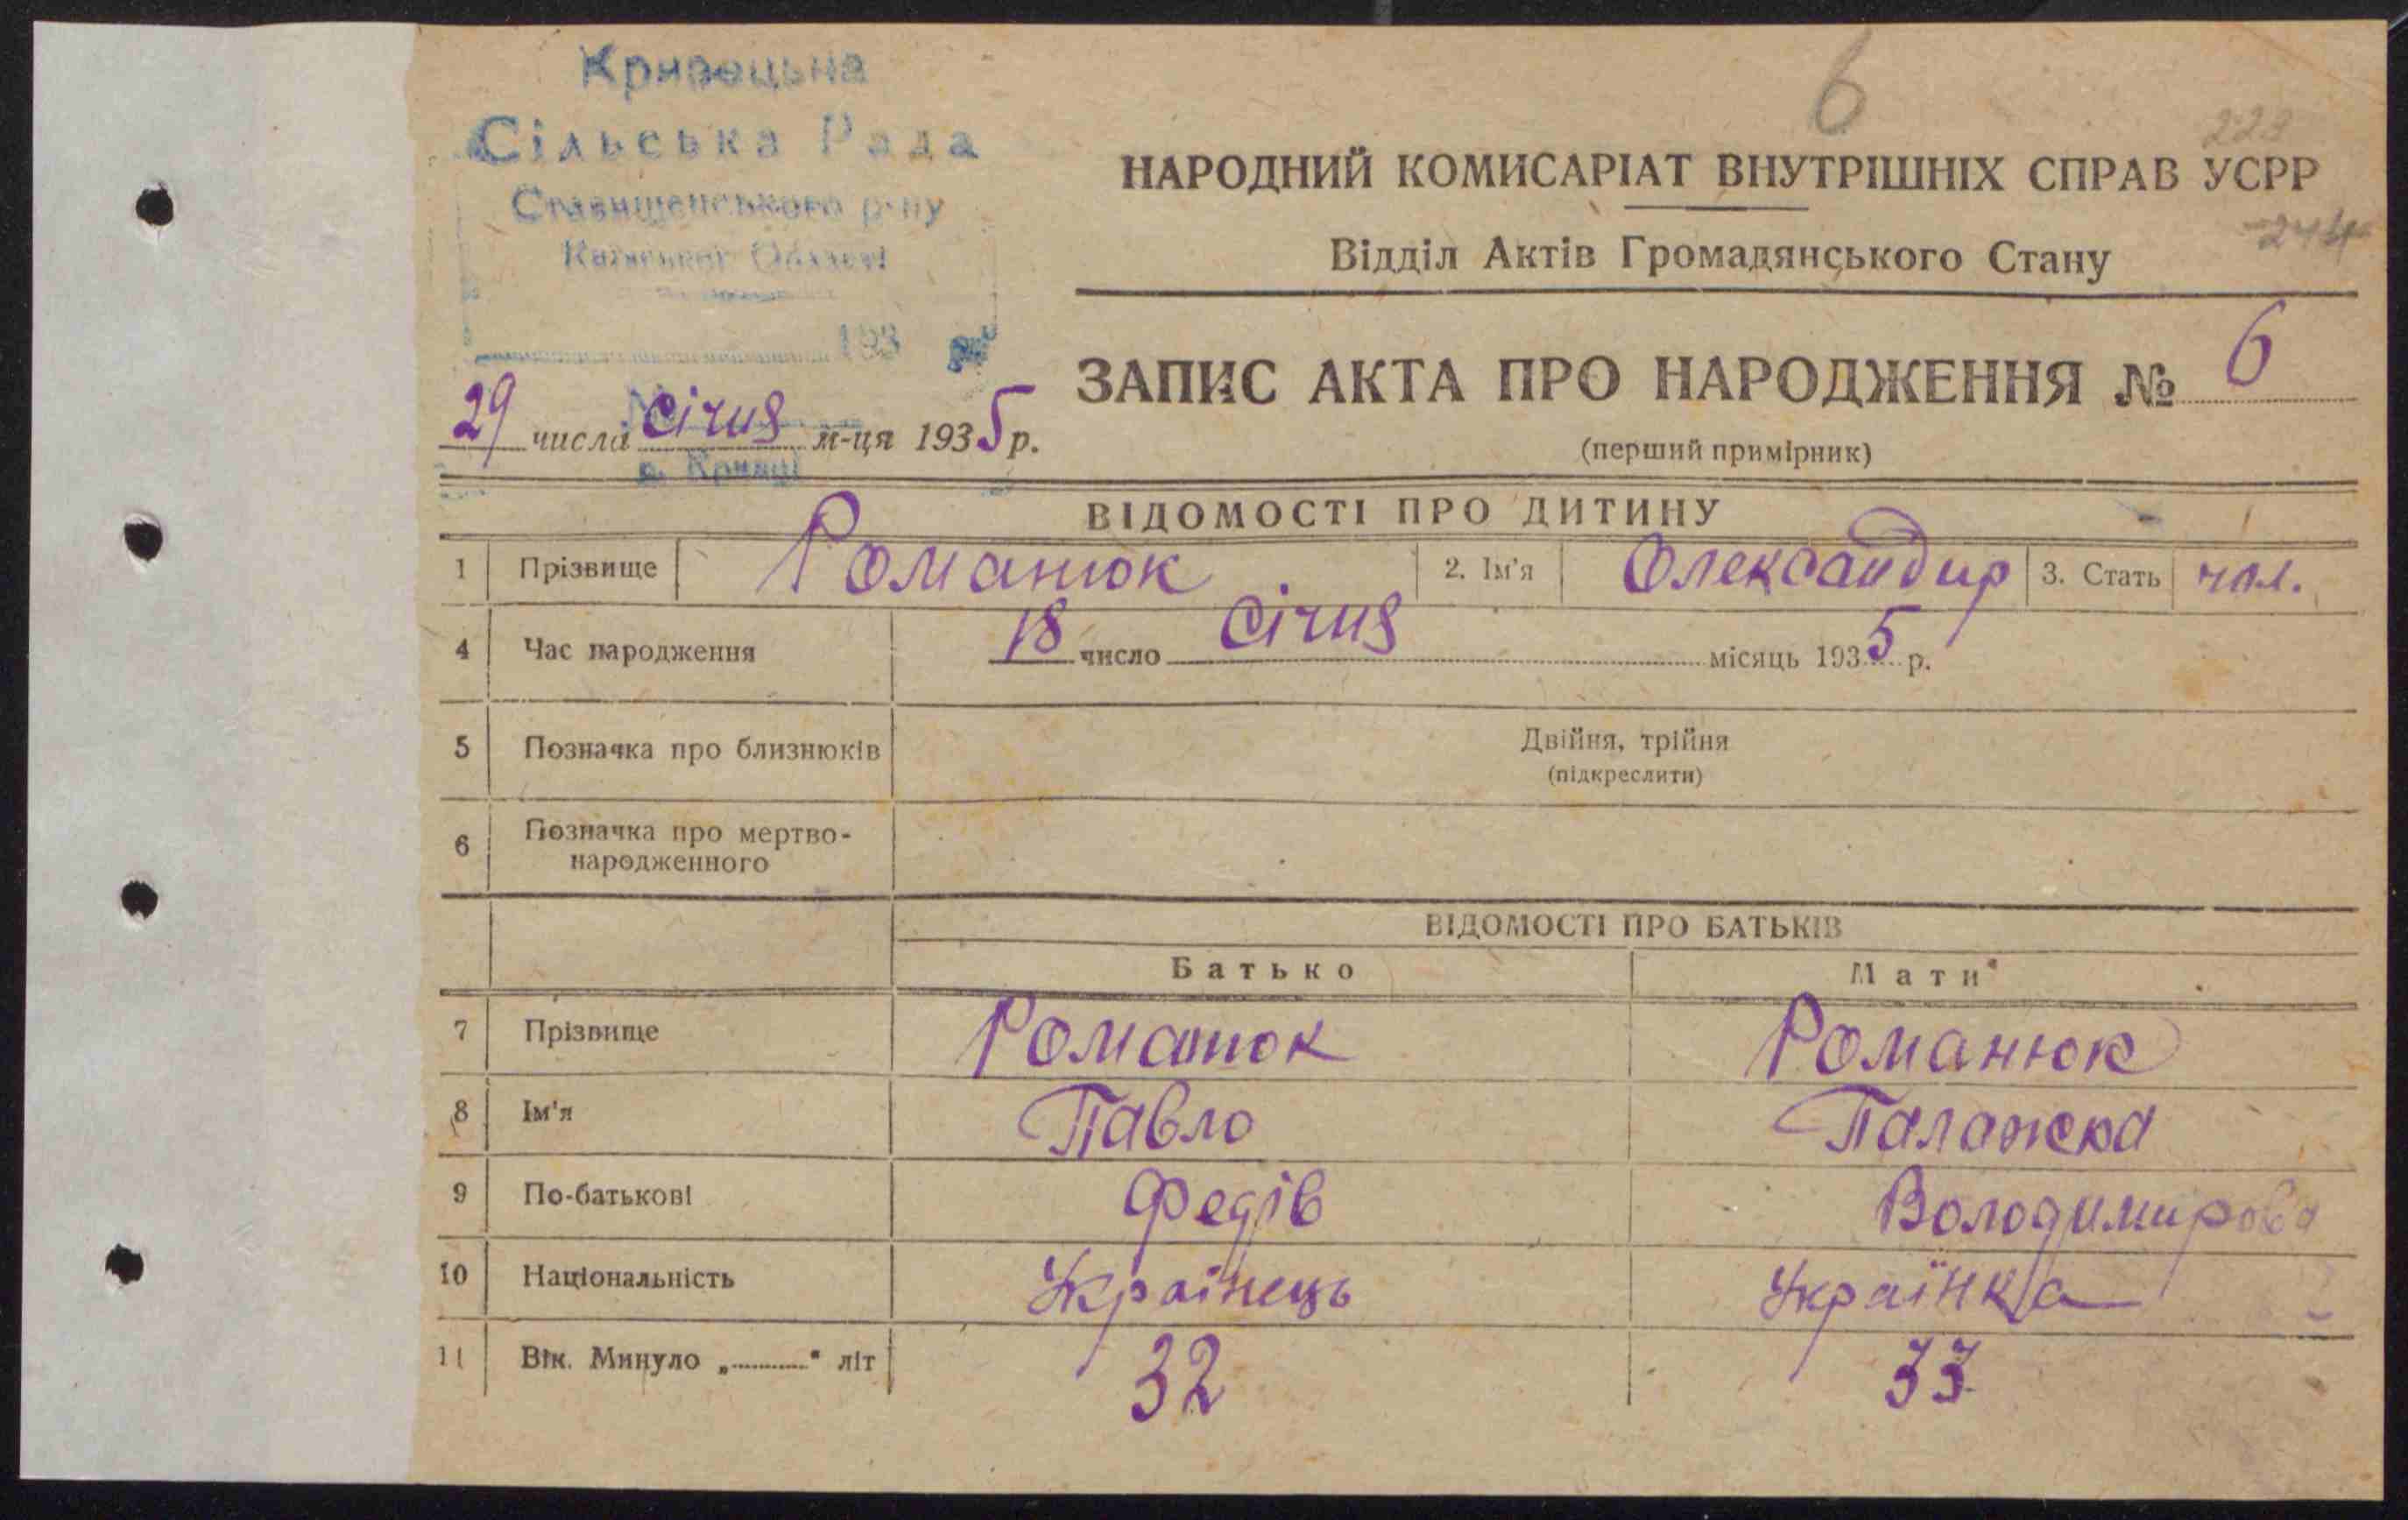 Кривецька
Сільська Рада
Ставищенського р-ну
Київської Області
193
с. Кривці
6
228
244
НАРОДНИЙ КОМИСАРІАТ ВНУТРІШНІХ СПРАВ УСРР
Відділ Актів Громадянського Стану
ЗАПИС АКТА ПРО НАРОДЖЕННЯ № 6
(перший примірник)
29 числа січня м-ця 1935 р.
ВІДОМОСТІ ПРО ДИТИНУ
1 Прізвище Романюк 2. Ім'я Олександир 3. Стать чол.
4 Час народження 18 число Січня місяць 1935 р.
5 Позначка про близнюків Двійня, трійня
(підкреслити)
6 Позначка про мертво-
народженного
ВІДОМОСТІ ПРО БАТЬКІВ
Батько Мати
7 Прізвище Романюк Романюк
8 Ім'я Павло Палажка
9 По-батькові Федів Володимирова
10 Національність Українець Українка
11 Вік. Минуло „............“ літ 32 33